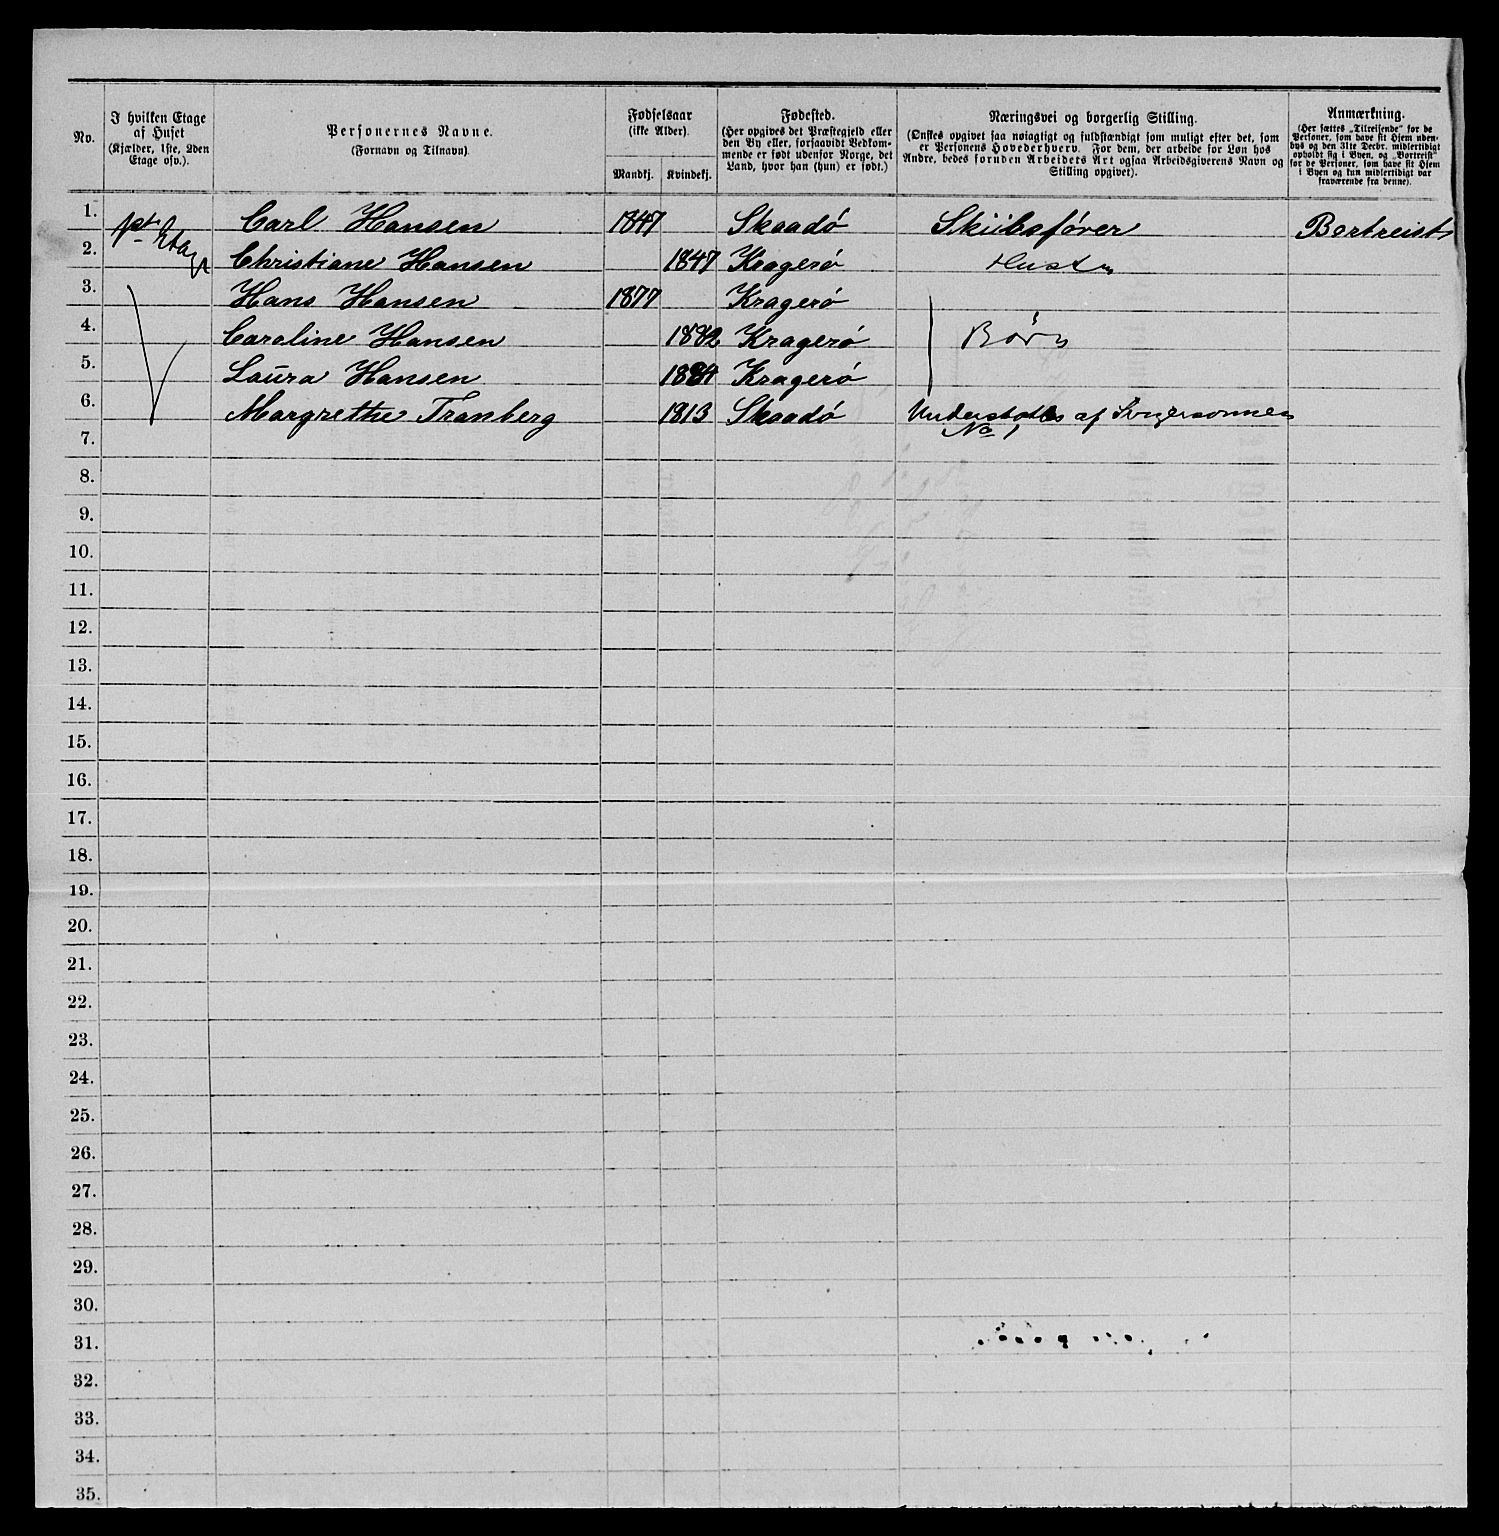 No.
I hvilken Etage
af Huset
(Kjælder, 1ste, 2den
Etage osv.).
Personernes Navne.
(Fornavn og Tilnavn).
Fødselsaar
(ikke Alder).
Mandkj. Kvindekj.
Fødested.
(Her opgives det Præstegjeld eller
den By eller, forsaavidt Vedkom-
mende er født udenfor Norge, det
Land, hvor han (hun) er født.)
Næringsvei og borgerlig Stilling.
(Ønskes opgivet saa nøiagtigt og fuldstændigt som muligt efter det, som
er Personens Hovederhverv. For dem, der arbeide for Løn hos
Andre, bedes foruden Arbeidets Art ogsaa Arbeidsgiverens Navn og
Stilling opgivet).
Anmærkning.
(Her sættes „Tilreisende" for de
Personer, som have sit Hjem uden-
bys og den 31te Decbr. midlertidigt
opholdt sig i Byen, og „Bortreist"
for de Personer, som have sit Hjem
i Byen og kun midlertidigt var
fraværende fra denne).
1. 1st Etage Carl Hansen 1847 Skaadø Skibsfører Bortreist
2. Christiane Hansen 1847 Kragerø Hustru
3. Hans Hansen 1877 Kragerø
4. Caroline Hansen 1882 Kragerø Børn
5. Laura Hansen 1884 Kragerø
6. Margrethe Tranberg 1813 Skaadø Understøttes af Svigersønnen
No 1
7.
8.
9.
10.
11.
12.
13.
14.
15.
16.
17.
18.
19.
20.
21.
22.
23.
24.
25.
26.
27.
28.
29.
30.
31.
32.
33.
34.
35.